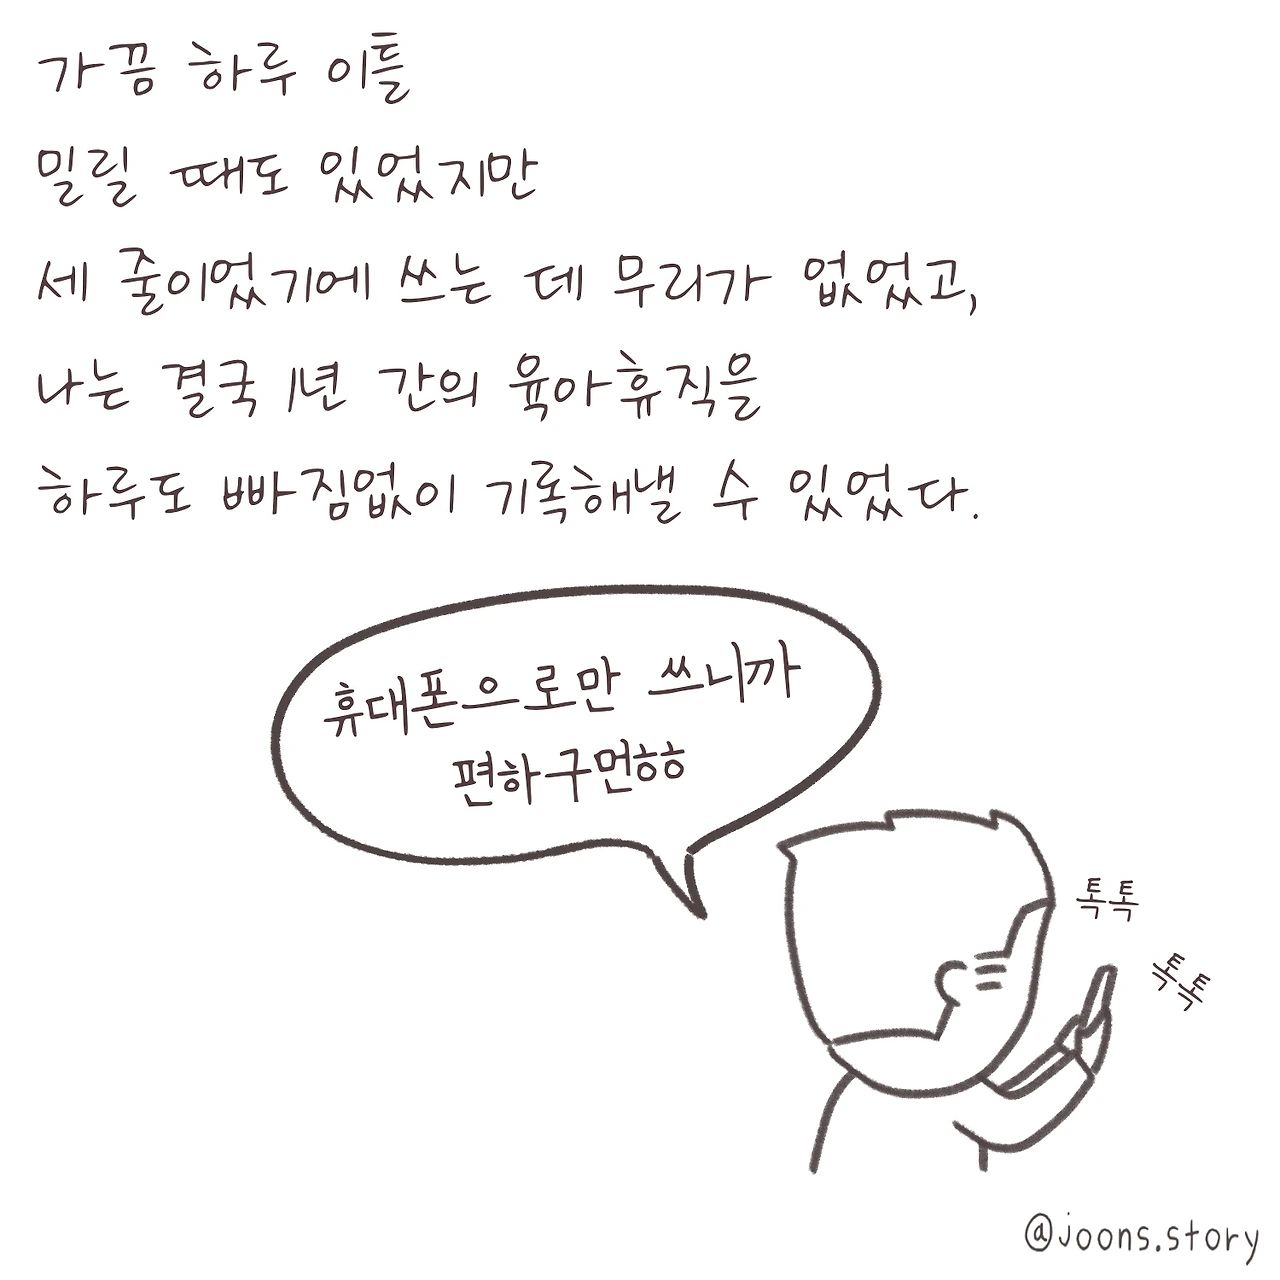 가끔 하루 이틀
밀릴 때도 있었지만
세 줄이었기에 쓰는 데 무리가 없었고,
나는 결국 1년 간의 육아휴직을
하루도 빠짐없이 기록해낼 수 있었다.
휴대폰으로만 쓰니까
편하구먼ㅎㅎ
톡톡
톡톡
@joons.story